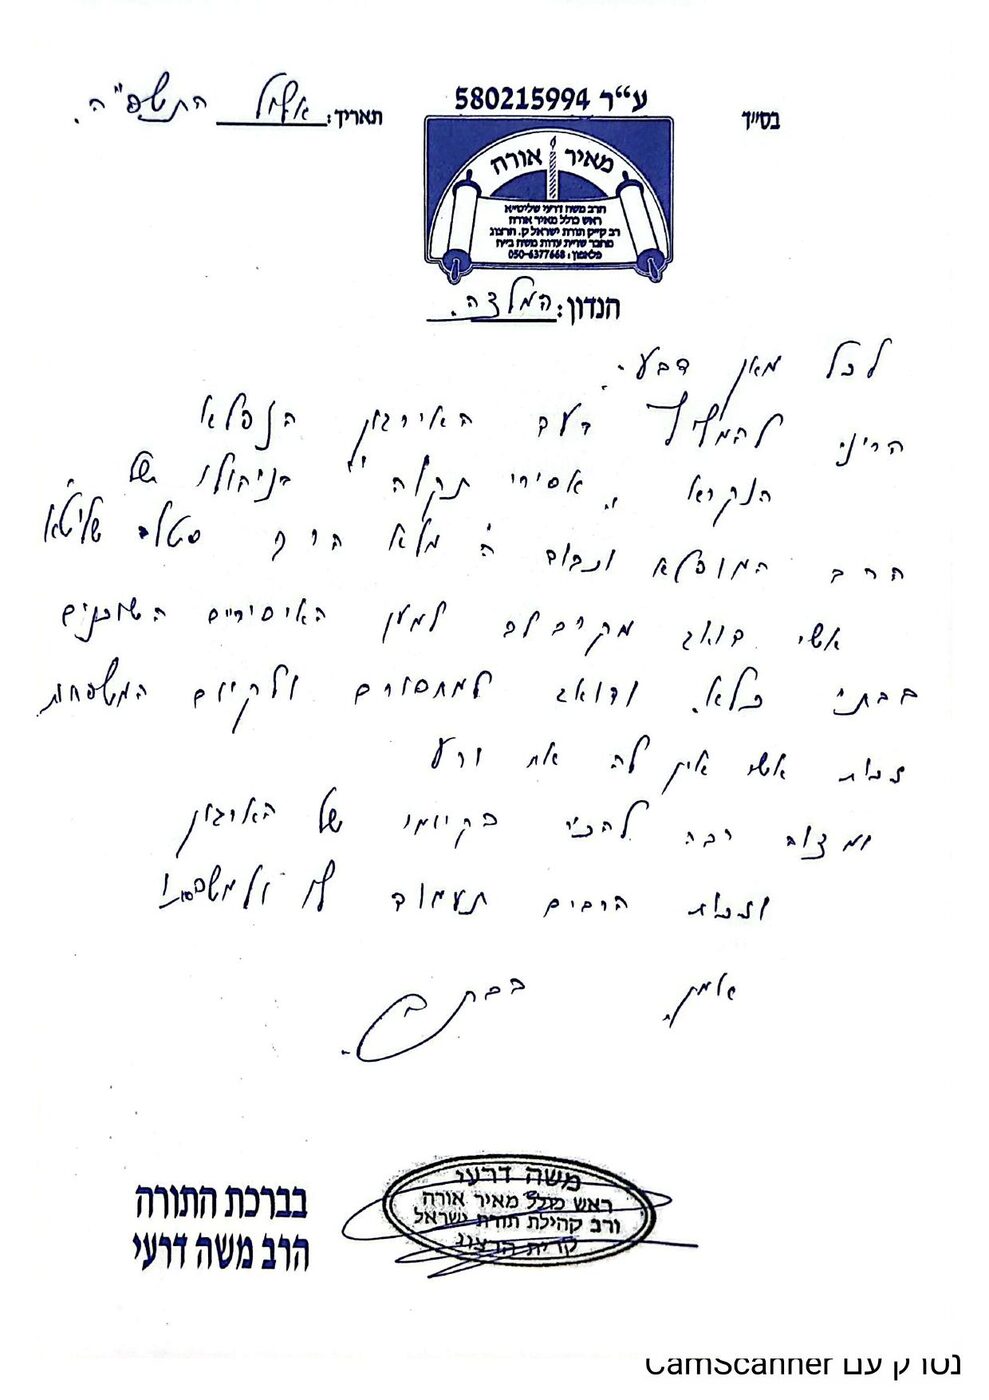 בס״ד
ע״ר 580215994
תאריך: אלול התשפ"ה.
מאיר אורח
הרב משה דרעי שליט״א
ראש כולל מאיר אורח
רב ק״ק תורת ישראל ק. הרצוג
מחבר שו״ת עדות משה ב״ח
פלאפון: 050-6377668
הנדון: המלצה.
לכל מאן דבעי.
הריני להמליץ בעב האירגון הנפלא
הנקרא "אסירי תקוה" בניהולו של
הרב המופלא ונבוב ה' מלא הרף סטלב שליטא
אשר דואג מקרב לב למען האיסיריים השוכנים
בבתי כלא. ודואג למחסורם ולקיום המשפחות
זכות אשר אין לה את ורע
ומצוה רבה להכיר בקיומו של הארגון
וזכות הרבים תעמוד לו ולמשפחתו
אמן. בברכת
בברכת התורה
הרב משה דרעי
משה דרעי
ראש כולל מאיר אורח
ורב קהילת תורת ישראל
קרית הרצוג
נסרק עם CamScanner